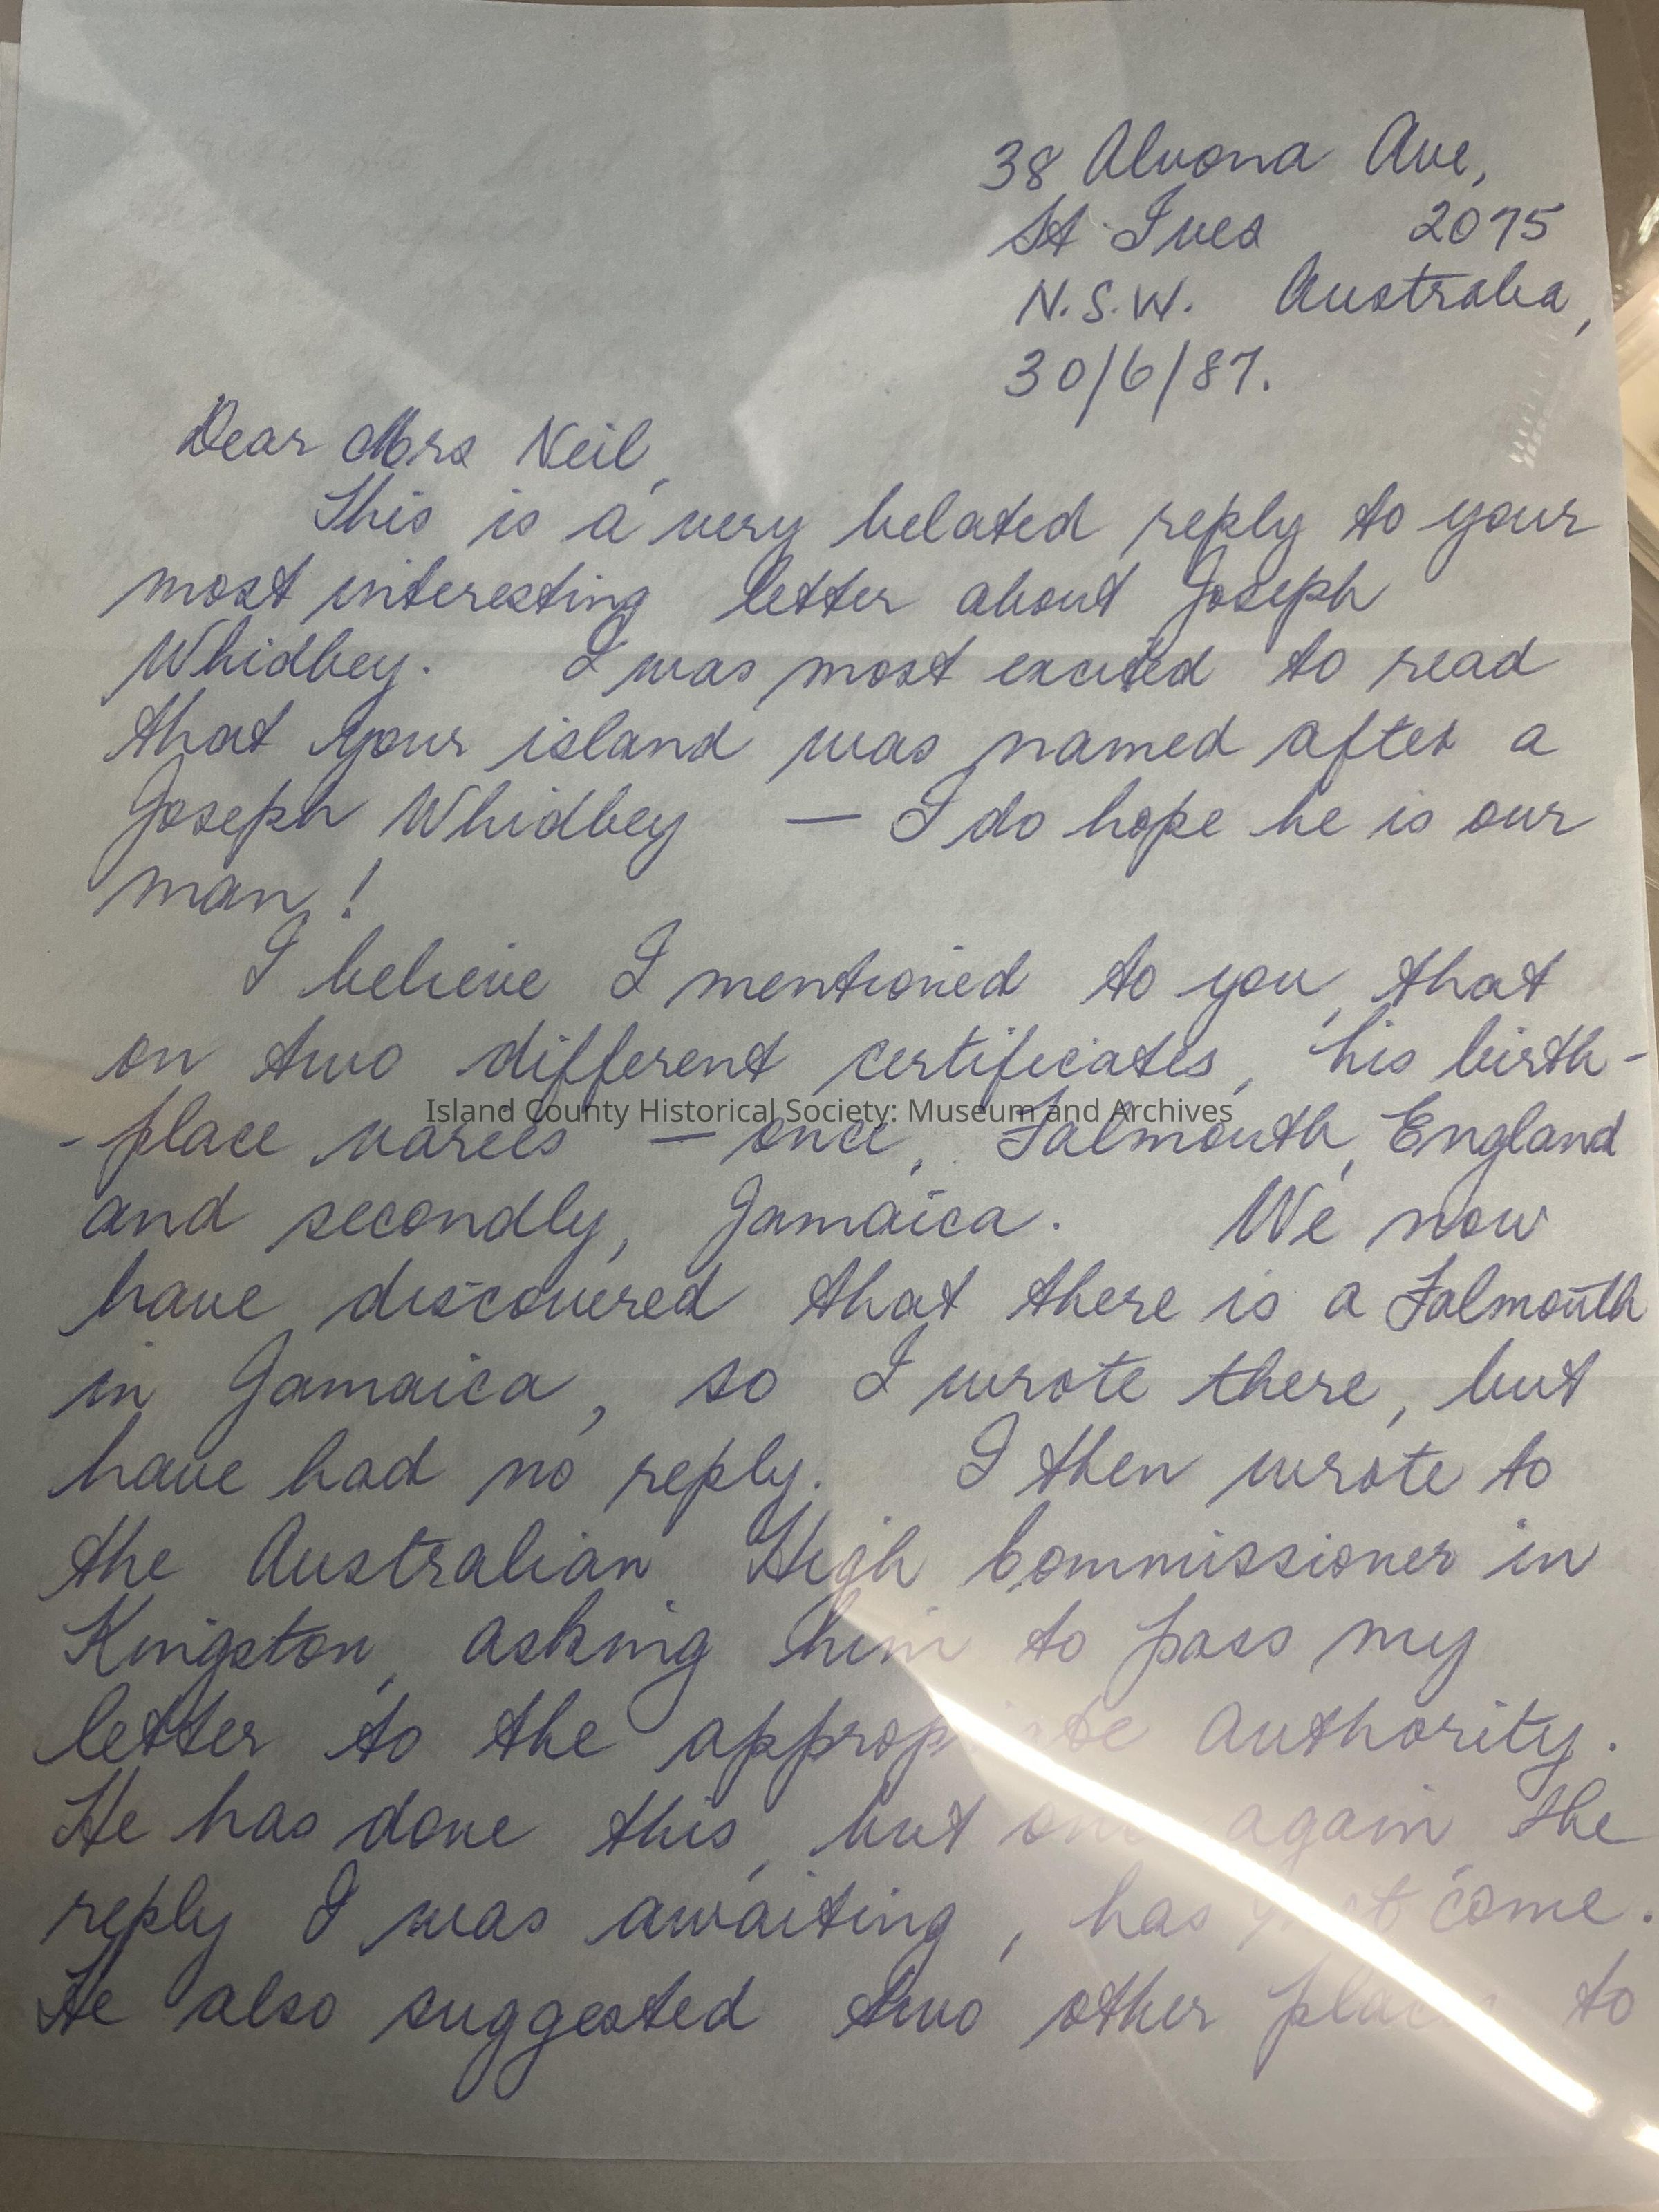 38 Alvona Ave,
St Ives 2075
N.S.W. Australia,
30/6/87.
Dear Mrs Neil,
This is a very belated reply to your
most interesting letter about Joseph
Whidbey. I was most excited to read
that your island was named after a
Joseph Whidbey — I do hope he is our
man!
I believe I mentioned to you, that
on two different certificates, his birth-
-place varies — once, Falmouth, England
Island County Historical Society: Museum and Archives
and secondly, Jamaica. We now
have discovered that there is a Falmouth
in Jamaica, so I wrote there, but
have had no reply. I then wrote to
the Australian High Commissioner in
Kingston, asking him to pass my
letter to the appropriate authority.
He has done this, but once again, the
reply I was awaiting, has not come.
He also suggested two other places to